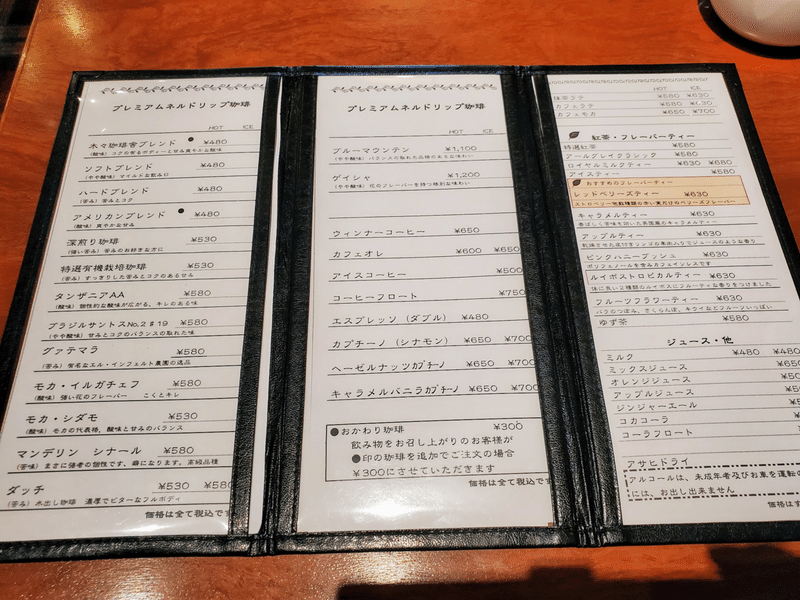 プレミアムネルドリップ珈琲
HOT ICE
木々珈琲舎ブレンド ● ¥480
(酸味) コクの有るボディーと甘み爽やかな酸味
ソフトブレンド ¥480
(やや酸味) マイルドな飲み口
ハードブレンド ¥480
(苦み) 苦みとコク
アメリカンブレンド ● ¥480
(酸味) 爽やかな甘み
深煎り珈琲 ¥530
(強い苦み) 苦みのお好きな方に
特選有機栽培珈琲 ¥530
(苦み) すっきりした苦みとコクのある甘み
タンザニアAA ¥580
(酸味) 個性的な酸味が広がる、キレのある味
ブラジルサントスNo.2#19 ¥580
(やや酸味) 甘みとコクのバランスの取れた味
グァテマラ ¥580
(苦み) 有名なエル・インフェルト農園の逸品
モカ・イルガチェフ ¥580
(酸味) 強い花のフレーバー こくとキレ
モカ・シダモ ¥530
(酸味) モカの代表格、酸味と甘みのバランス
マンデリン シナール ¥580
(苦味) まさに強者の個性です、癖になります。高級品種
ダッチ ¥530 ¥580
(苦み) 水出し珈琲 濃厚でビターなフルボディ
価格は全て税込です
プレミアムネルドリップ珈琲
HOT ICE
ブルーマウンテン ¥1,100
(やや酸味) バランスの取れた品格のある味わい
ゲイシャ ¥1,200
(やや酸味) 花のフレーバーを持つ特別な味わい
ウィンナーコーヒー ¥650
カフェオレ ¥600 ¥650
アイスコーヒー ¥500
コーヒーフロート ¥750
エスプレッソ (ダブル) ¥480
カプチーノ (シナモン) ¥650 ¥700
ヘーゼルナッツカプチーノ ¥650 ¥700
キャラメルバニラカプチーノ ¥650 ¥700
●おかわり珈琲 ¥300
飲み物をお召し上がりのお客様が
●印の珈琲を追加でご注文の場合
¥300にさせていただきます
価格は全て税込です
HOT ICE
抹茶ラテ ¥580 ¥630
カフェラテ ¥580 ¥630
カフェモカ ¥650 ¥700
紅茶・フレーバーティー
特選紅茶 ¥580
アールグレイクラシック ¥580
ロイヤルミルクティー ¥630 ¥680
アイスティー ¥580
おすすめのフレーバーティー
レッドベリーズティー ¥630
ストロベリー他数種類の赤い実だけのベリーズフレーバー
キャラメルティー ¥630
香ばしく苦味を効いた英国風のキャラメルティー
アップルティー ¥580
乾燥させた皮付きリンゴの果肉入りでジュースのような香り
ピンクハニーブッシュ ¥630
ポリフェノールを含みカフェインレスです
ルイボストロピカルティー ¥630
体に良い2種類のルイボスにフルーティな香りをつけました
フルーツフラワーティー ¥630
バラのつぼみ、さくらんぼ、キウイなどフルーツいっぱい
ゆず茶 ¥580
ジュース・他
ミルク ¥480 ¥480
ミックスジュース
オレンジジュース
アップルジュース
ジンジャーエール
コカコーラ
コーラフロート
アサヒドライ
アルコールは、未成年者及びお車を運転の
には、お出し出来ません
価格は